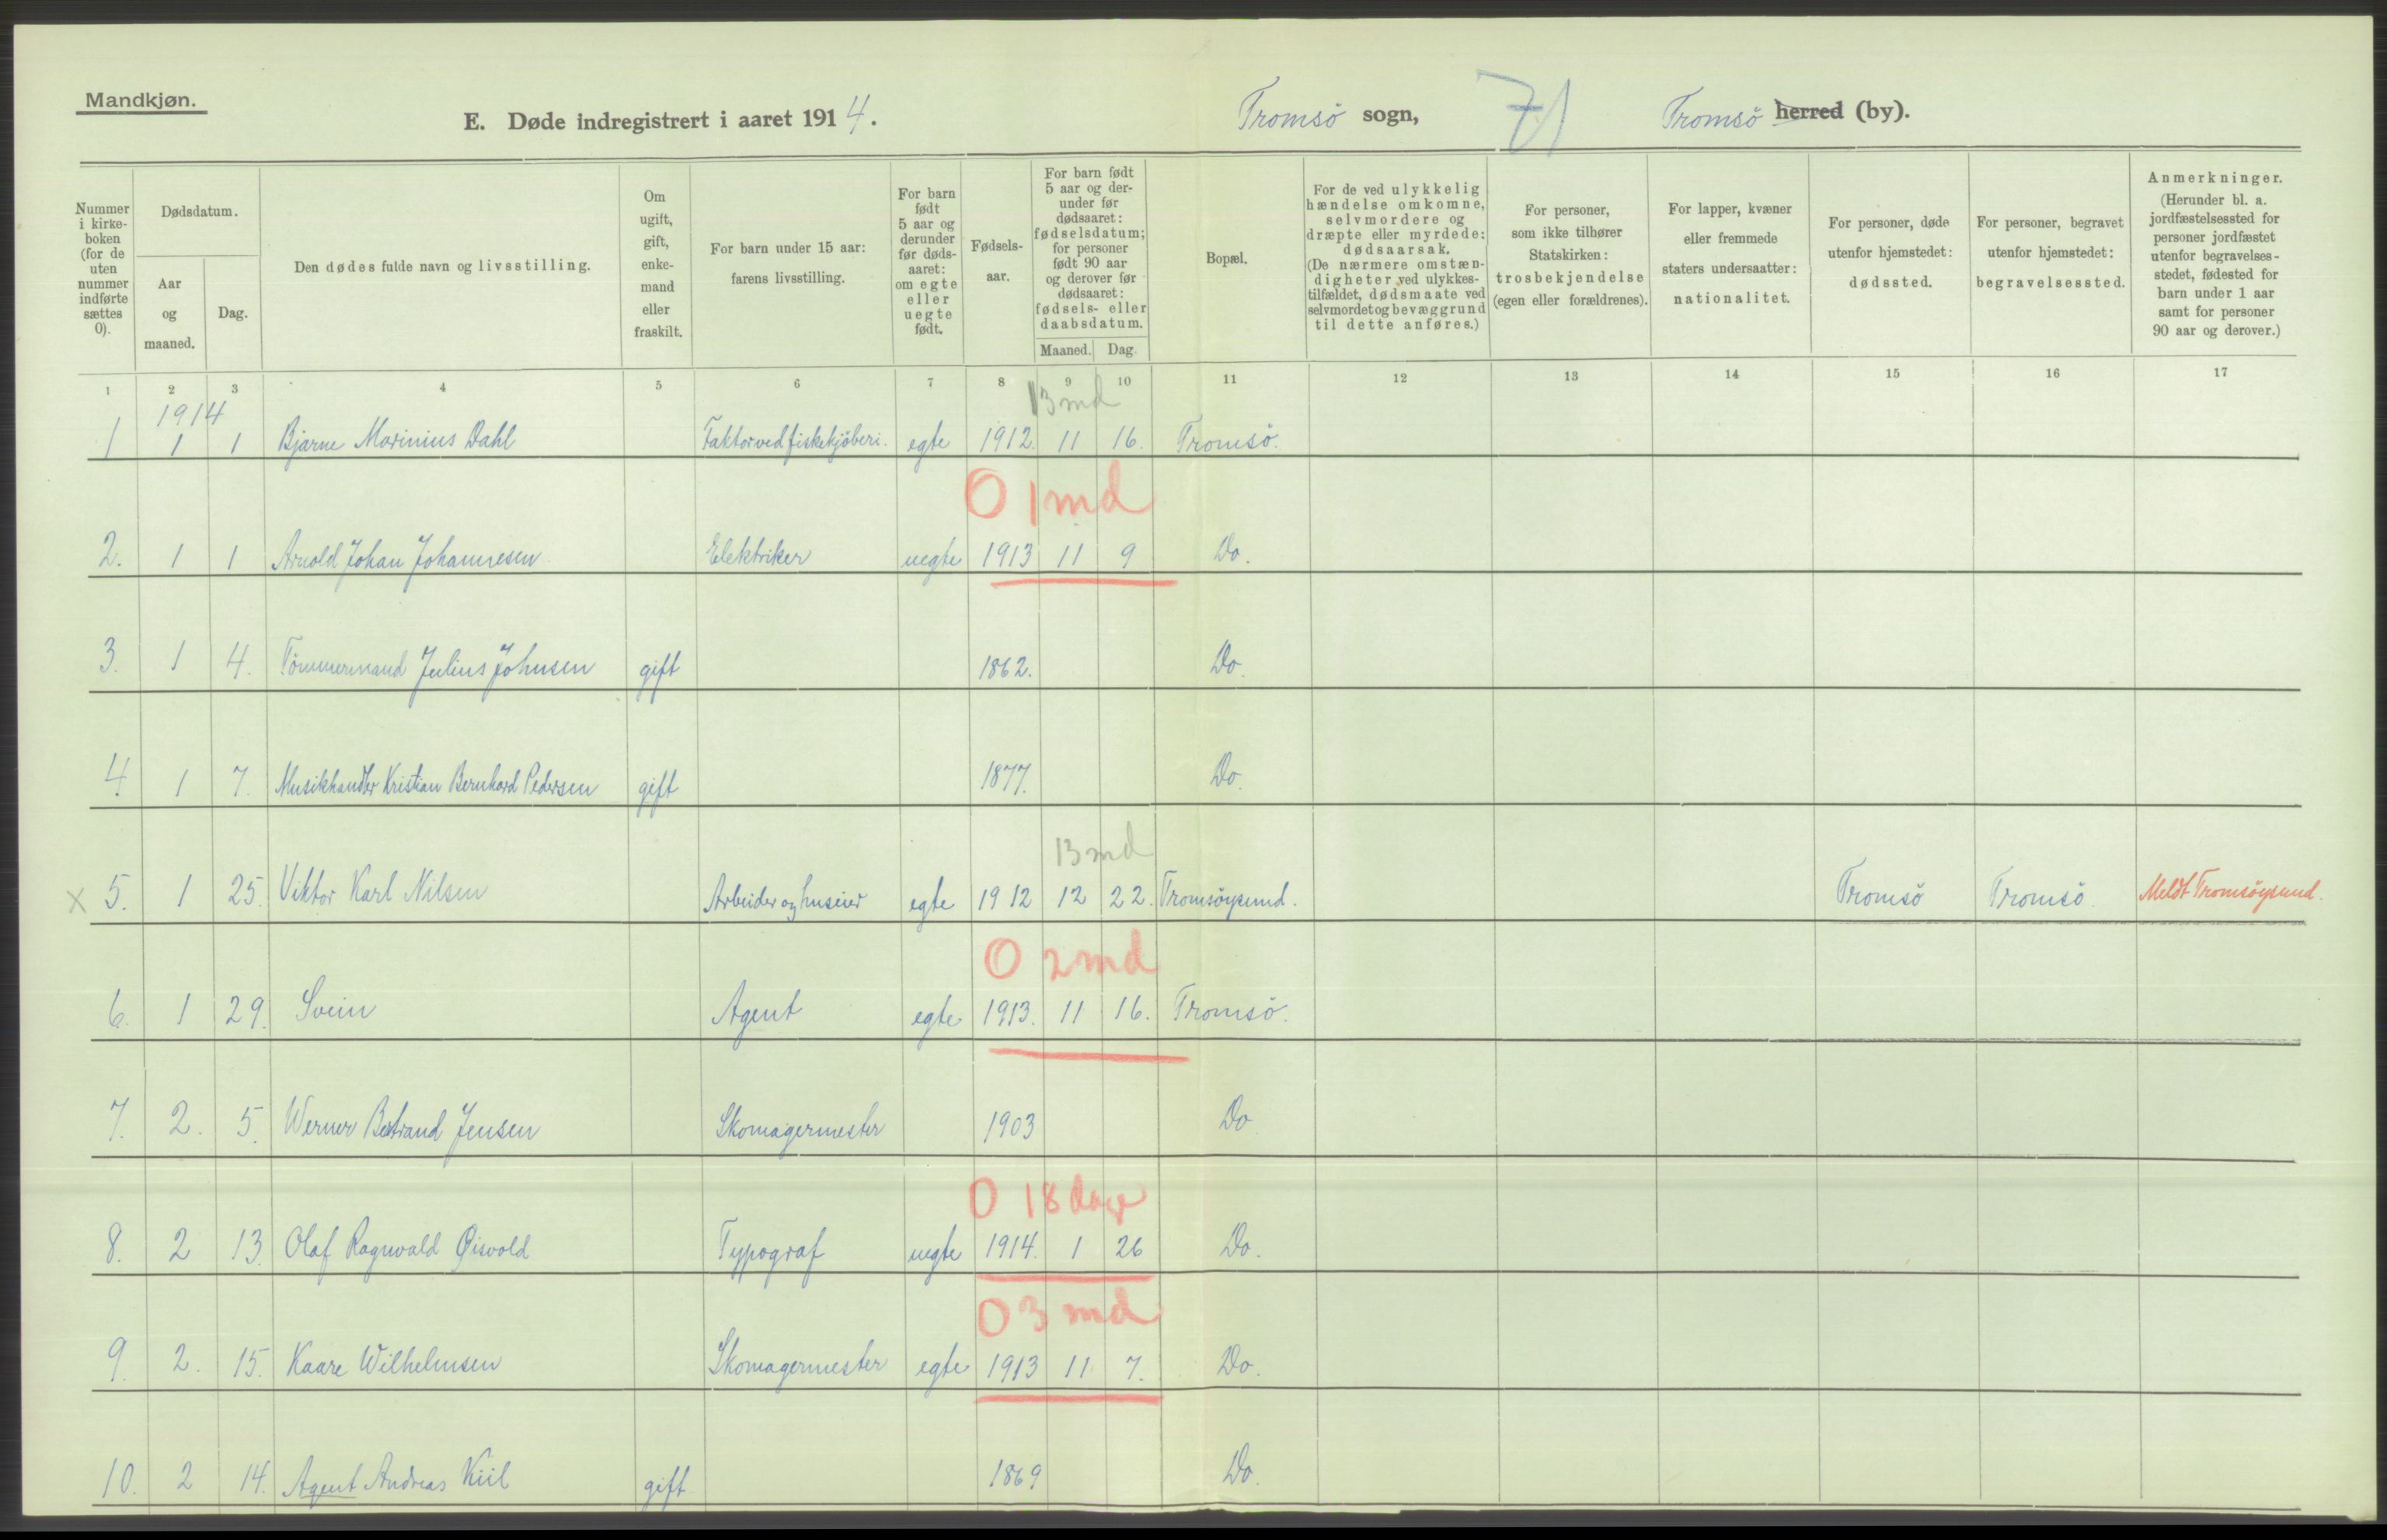 Mandkjøn.
E. Døde indregistrert i aaret 1914.
Tromsö sogn,
71
Tromsö herred (by).
Nummer i kirke-boken (for de uten nummer indførte sættes 0).
Dødsdatum.
Aar og maaned.
Dag.
Den dødes fulde navn og livsstilling.
Om ugift, gift, enke-mand eller fraskilt.
For barn under 15 aar: farens livsstilling.
For barn født 5 aar og derunder før døds-aaret: om egte eller uegte født.
Fødsels-aar.
For barn født 5 aar og der-under før dødsaaret: fødselsdatum; for personer født 90 aar og derover før dødsaaret: fødsels- eller daabsdatum.
Maaned. Dag.
Bopæl.
For de ved ulykkelig hændelse omkomne, selvmordere og dræpte eller myrdede: dødsaarsak. (De nærmere omstæn-digheter ved ulykkes-tilfældet, dødsmaate ved selvmordet og bevæggrund til dette anføres.)
For personer, som ikke tilhører Statskirken: trosbekjendelse (egen eller forældrenes).
For lapper, kvæner eller fremmede staters undersaatter: nationalitet.
For personer, døde utenfor hjemstedet: dødssted.
For personer, begravet utenfor hjemstedet: begravelsessted.
Anmerkninger. (Herunder bl. a. jordfæstelsessted for personer jordfæstet utenfor begravelses-stedet, fødested for barn under 1 aar samt for personer 90 aar og derover.)
1 2 3 4 5 6 7 8 9 10 11 12 13 14 15 16 17
1914
13 md
1 1 1 Bjarne Marinius Dahl Faktor ved fiskekjöberi. egte 1912. 11 16. Tromsö.
0 1 md
2. 1 1 Arnold Johan Johannesen Elektriker uegte 1913 11 9 Do.
3. 1 4. Tömmermand Julius Johnsen gift 1862. Do.
4 1 7. Musikhandler Kristian Bernhard Pedersen gift 1877. Do.
13 md
x 5. 1 25. Viktor Karl Nilsen Arbeider og huseier egte 1912 12 22. Tromsöysund. Tromsö Tromsö Meldt Tromsöysund.
0 2 md
6. 1 29. Svein Agent egte 1913. 11 16. Tromsö.
7. 2. 5. Werner Bertrand Jensen Skomagermester 1903 Do
0 18 dage
8. 2 13. Olaf Ragnvald Øisvold Typograf uegte 1914. 1 26 Do.
0 3 md
9. 2. 15. Kaare Wilhelmsen Skomagermester egte 1913 11 7. Do.
10. 2 14. Agent Andreas Kiil gift 1869 Do.